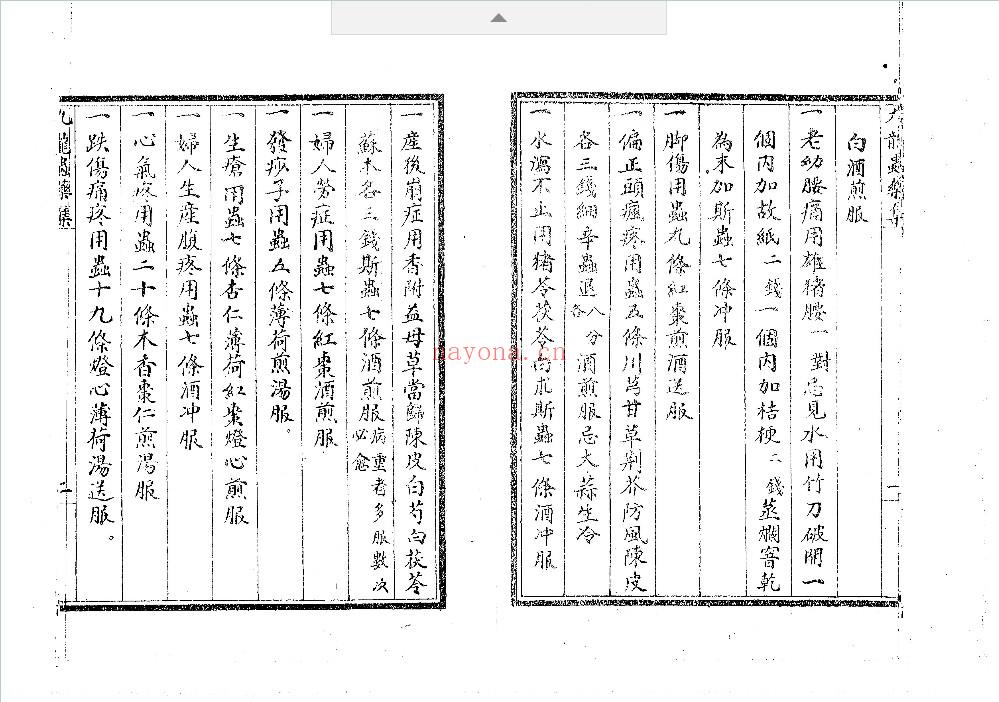 白酒煎服
一老幼腰痛用雄猪腰一對忌見水用竹刀破開一
個內加故紙二錢一個內加桔梗二錢蒸爛窨乾
為末加斯蟲七條冲服
一脚傷用蟲九條紅棗煎酒送服
一偏正頭瘋疼用蟲五條川芎甘草荆芥防風陳皮
各三錢細辛蟲退各八分酒煎服忌大蒜生冷
一水瀉不止用猪苓茯苓白朮斯蟲七條酒冲服
一
一產後崩症用香附益母草當歸陳皮白芍白茯苓
蘇木各三錢斯蟲七條酒煎服病重者多服數次必愈
一婦人勞症用蟲七條紅棗酒煎服
一發痧子用蟲五條薄荷煎湯服。
一生瘡用蟲七條杏仁薄荷紅棗燈心煎服
一婦人生產腹疼用蟲七條酒冲服
一心氣疼用蟲二十條木香棗仁煎湯服
一跌傷痛疼用蟲十九條燈心薄荷湯送服。
九龍蟲藥集
二
nayona.cn